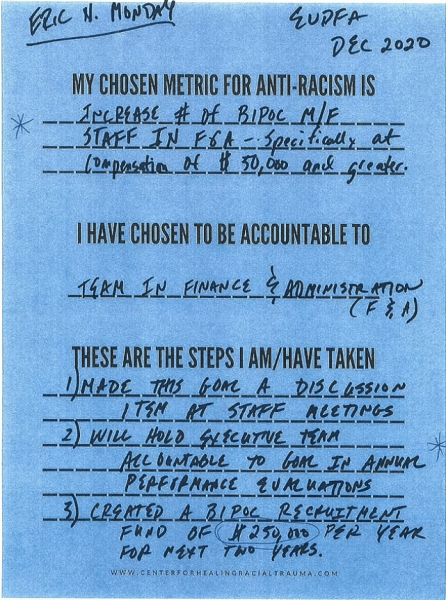 ERIC N. MONDAY
EVPFA
DEC 2020
MY CHOSEN METRIC FOR ANTI-RACISM IS
INCREASE # OF BIPOC M/F
STAFF IN F&A - Specifically at
Compensation of $50,000 and greater.
I HAVE CHOSEN TO BE ACCOUNTABLE TO
TEAM IN FINANCE & ADMINISTRATION
(F & A)
THESE ARE THE STEPS I AM/HAVE TAKEN
1) MADE THIS GOAL A DISCUSSION
ITEM AT STAFF MEETINGS
2) WILL HOLD EXECUTIVE TEAM
ACCOUNTABLE TO GOAL IN ANNUAL
PERFORMANCE EVALUATIONS
3) CREATED A BIPOC RECRUITMENT
FUND OF $250,000 PER YEAR
FOR NEXT TWO YEARS.
WWW.CENTERFORHEALINGRACIALTRAUMA.COM